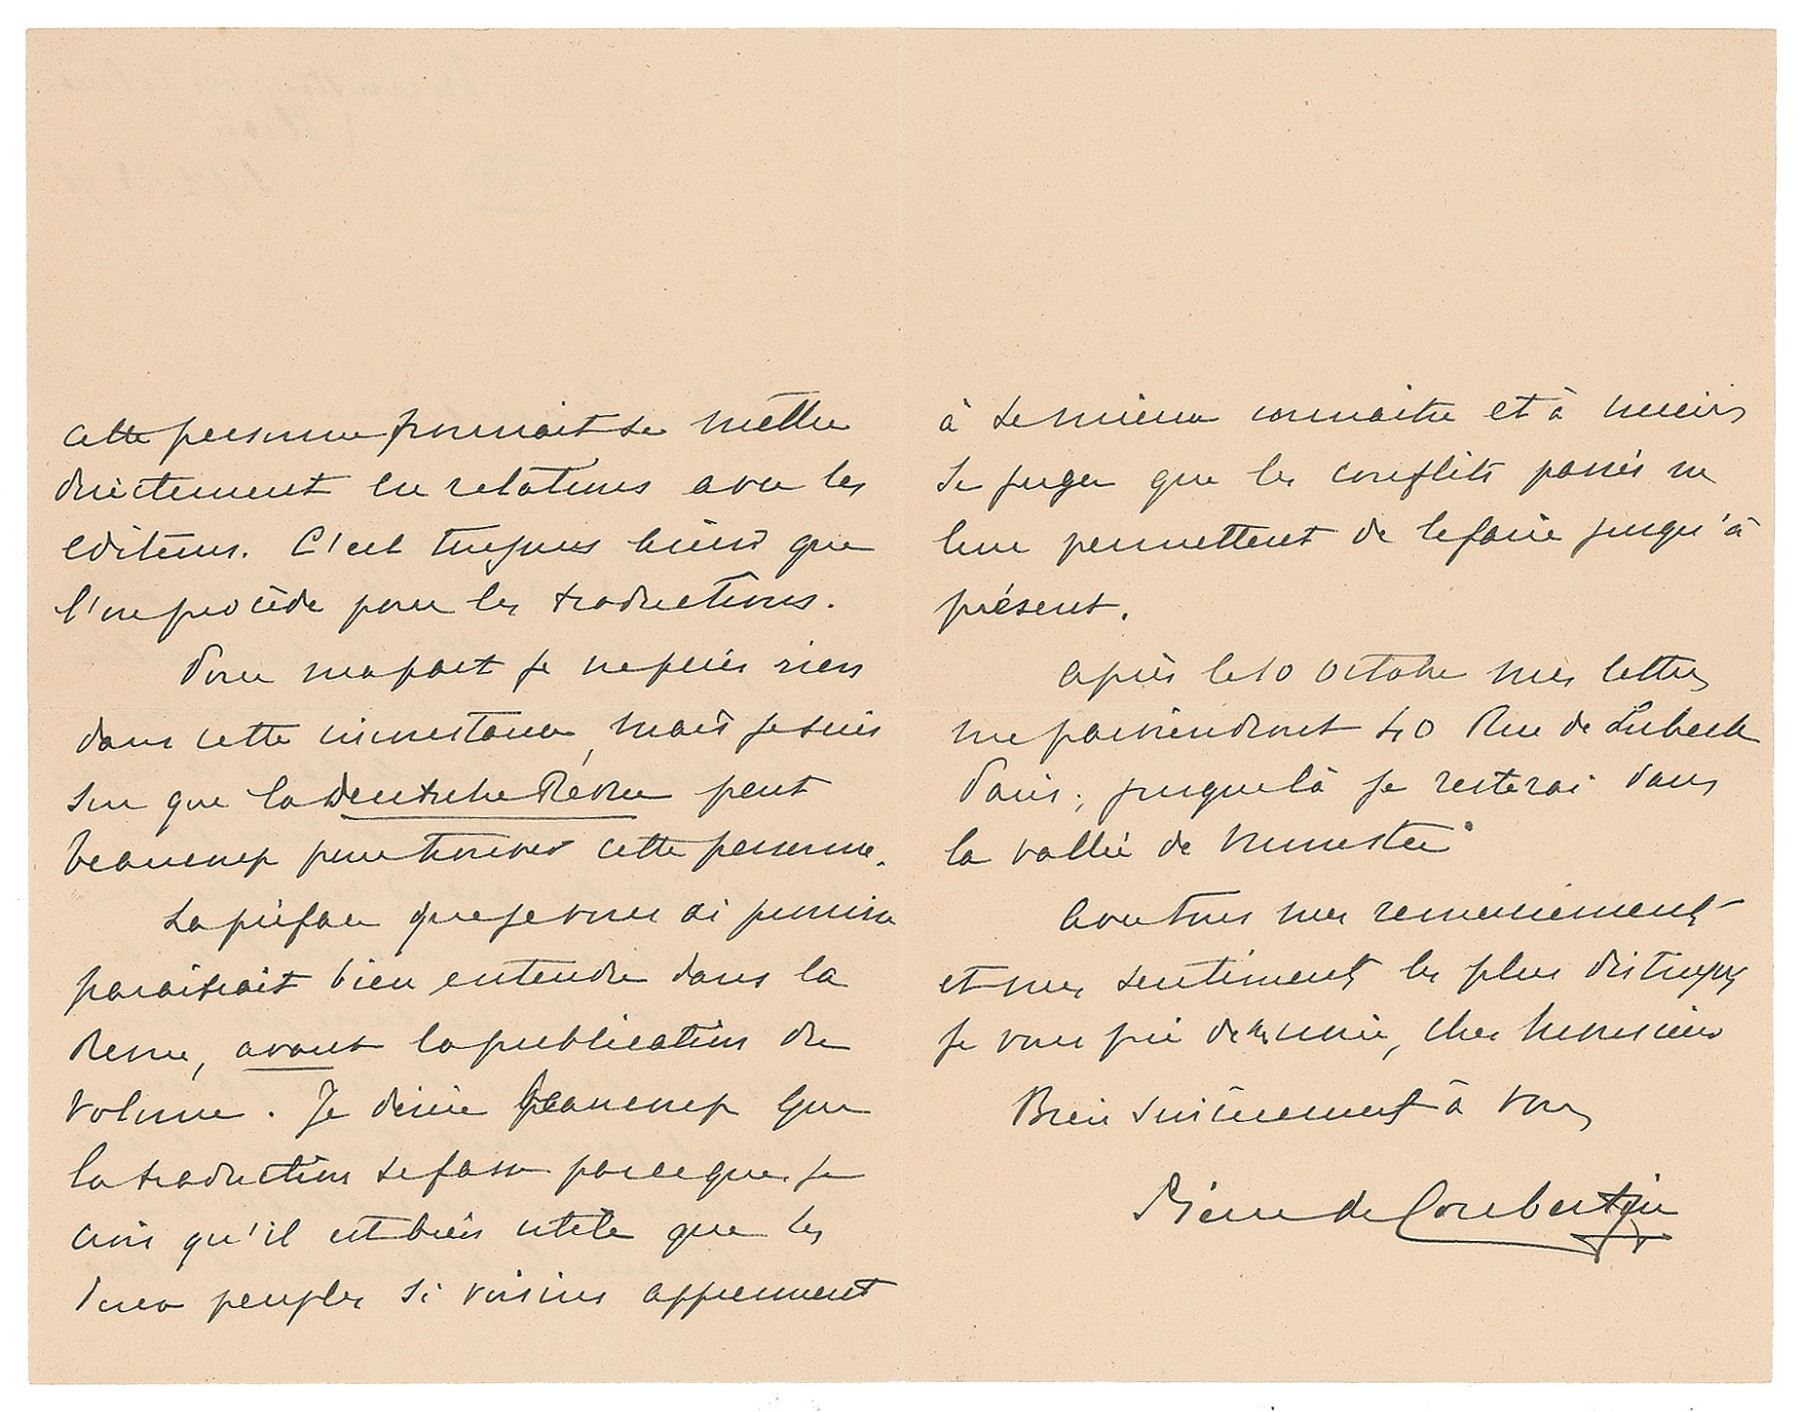 cette personne pourrait se mettre
directement en relations avec les
editeurs. C'est toujours ainsi que
l'on procède pour les traductions.
Pour ma part je ne puis rien
dans cette circonstance, mais je suis
sur que la Deutsche Revue peut
beaucoup pour trouver cette personne.
La préface que je vous ai promise
paraitrait bien entendu dans la
Revue, avant la publication du
volume. Je désire beaucoup que
la traduction se fasse parceque je
crois qu'il est bien utile que les
deux peuples si voisins apprennent
à se mieux connaitre et à mieux
se juger que les conflits passés ne
leur permettent de le faire jusqu'à
présent.
Après le 10 octobre mes lettres
me parviendront 40 Rue de Lubeck
Paris ; jusque là je resterai dans
la vallée de Munster
Avec tous mes remerciements
et mes sentiments les plus distingués
je vous prie de me croire, cher Monsieur
Bien sincèrement à vous
Pierre de Coubertin